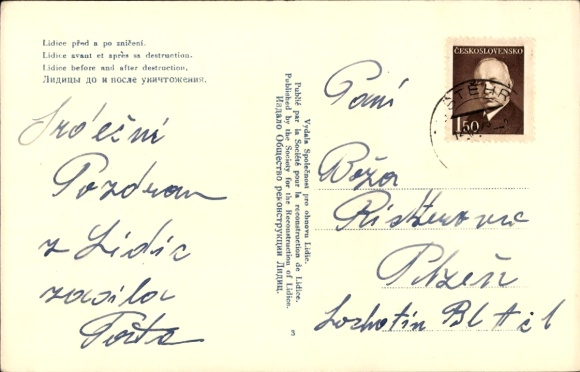 Lidice před a po zničení.
Lidice avant et après sa destruction.
Lidice before and after destruction.
Лидицы до и после уничтожения.
Srdeční
Pozdrav
z Lidic
zasíla
Vydala Společnost pro obnovu Lidic.
Publié par la Société pour la reconstruction de Lidice.
Published by the Society for the Reconstruction of Lidice.
Издало Общество реконструкции Лидиц.
8
ČESKOSLOVENSKO
1.50
Paní
Boža
Plzeň
Lochotín Bl A č 1